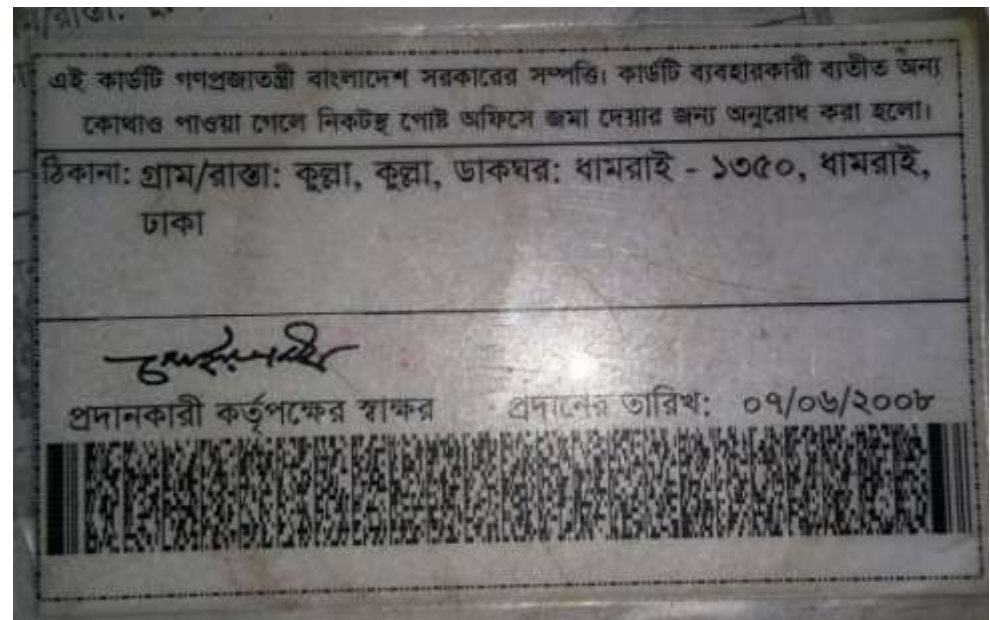 এই কার্ডটি গণপ্রজাতন্ত্রী বাংলাদেশ সরকারের সম্পত্তি। কার্ডটি ব্যবহারকারী ব্যতীত অন্য
কোথাও পাওয়া গেলে নিকটস্থ পোষ্ট অফিসে জমা দেয়ার জন্য অনুরোধ করা হলো।
ঠিকানা: গ্রাম/রাস্তা: কুল্লা, কুল্লা, ডাকঘর: ধামরাই - ১৩৫০, ধামরাই,
ঢাকা
প্রদানকারী কর্তৃপক্ষের স্বাক্ষর প্রদানের তারিখ: ০৭/০৬/২০০৮